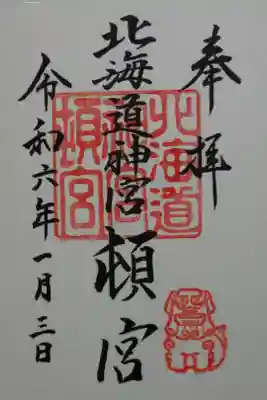 奉拝
北海道神宮頓宮
北海道神宮頓宮
令和六年一月三日